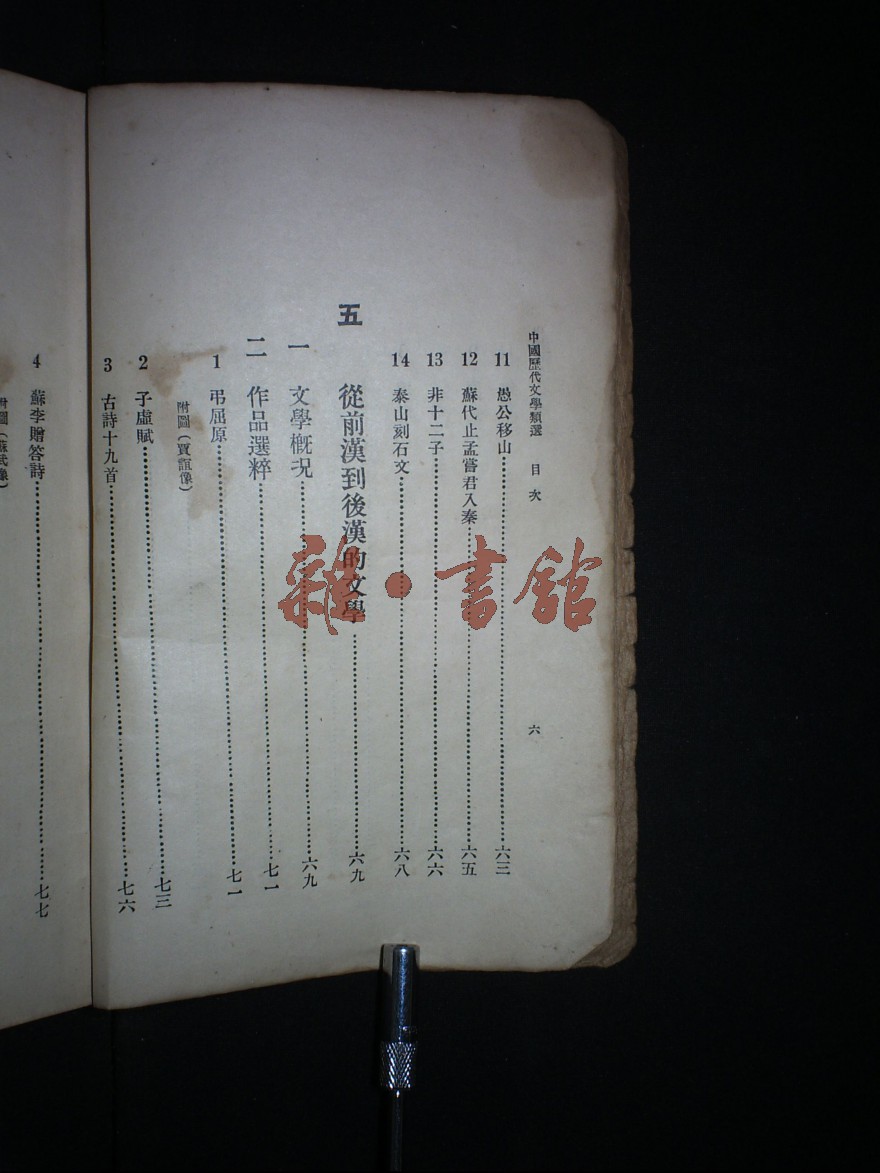 中國歷代文學類選 目次 六
11 愚公移山……六三
12 蘇代止孟嘗君入秦……六五
13 非十二子……六六
14 泰山刻石文……六八
五 從前漢到後漢的文學……六九
一 文學概況……六九
二 作品選粹……七一
1 弔屈原……七一
附圖（賈誼像）
2 子虛賦……七三
3 古詩十九首……七六
4 蘇李贈答詩……七七
附圖（蘇武像）
雜·書館